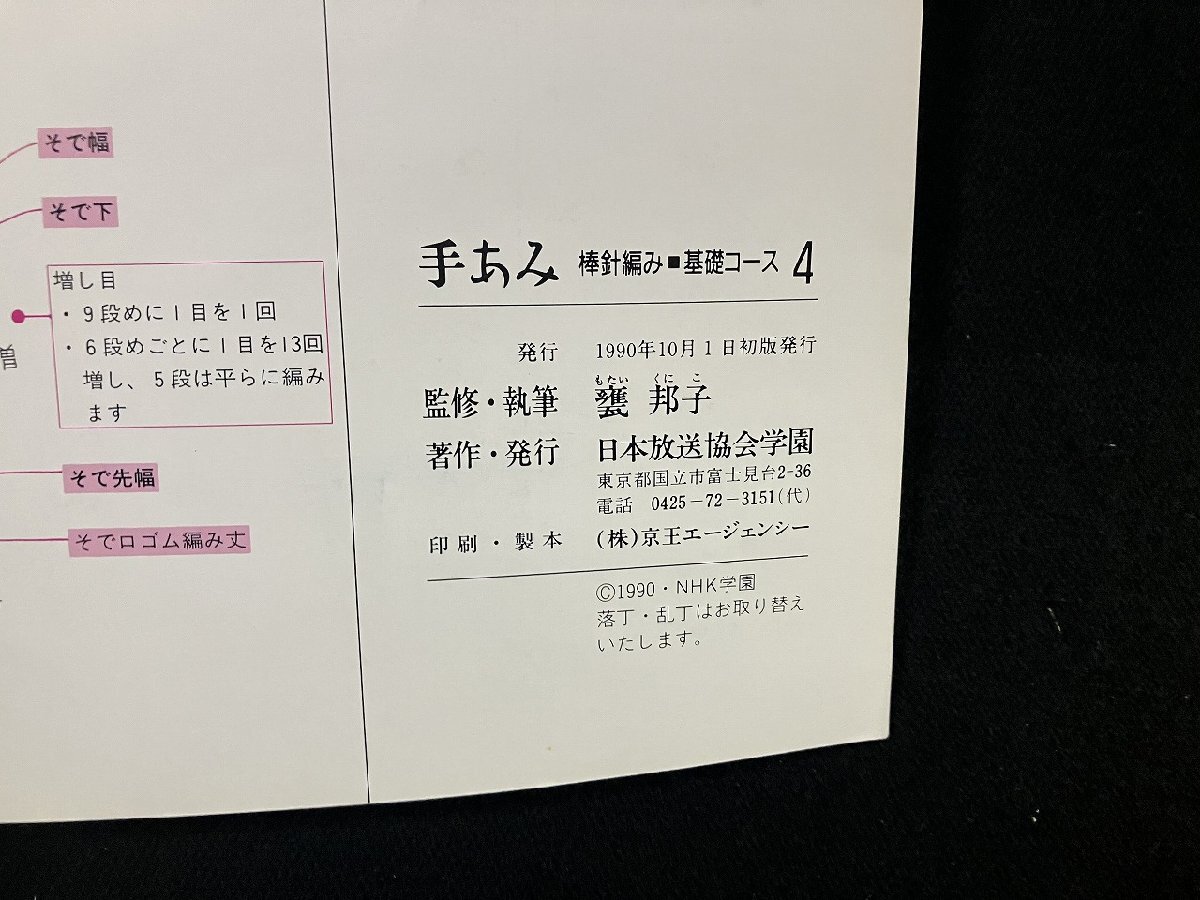 そで幅
そで下
増し目
・9段めに1目を1回
・6段めごとに1目を13回
増し、5段は平らに編み
ます
そで先幅
そで口ゴム編み丈
手あみ 棒針編み■基礎コース 4
発行 1990年10月1日初版発行
もたい くにこ
監修・執筆 甕 邦子
著作・発行 日本放送協会学園
東京都国立市富士見台2-36
電話 0425-72-3151(代)
印刷・製本 (株)京王エージェンシー
©1990・NHK学園
落丁・乱丁はお取り替え
いたします。